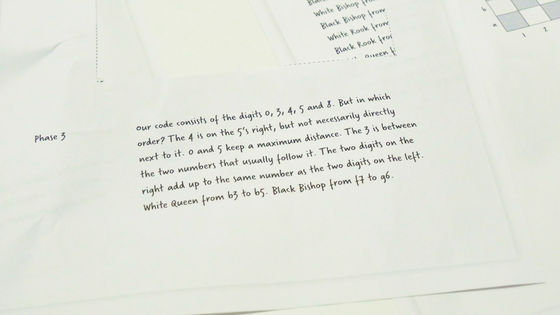 Black
White Bishop from
Black Bishop from
White Rook from
Black Rook from
Queen f
b
a
1 2
Phase 3
Our code consists of the digits 0, 3, 4, 5 and 8. But in which
order? The 4 is on the 5's right, but not necessarily directly
next to it. 0 and 5 keep a maximum distance. The 3 is between
the two numbers that usually follow it. The two digits on the
right add up to the same number as the two digits on the left.
White Queen from b3 to b5. Black Bishop from f7 to g6.